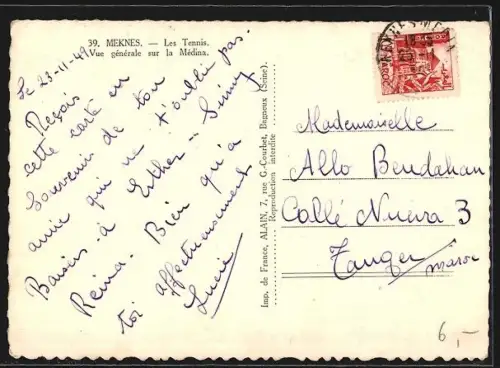 39. MEKNES. — Les Tennis.
Vue générale sur la Médina.
Le 23-11-49
Reçois
cette carte en
souvenir de ton
amie qui ne t'oublie pas.
Baisers à Esther - Simy
Reina. Bien qu'a
toi affectueusement
Lucie
Imp. de France, ALAIN, 7, rue G.-Courbet, Bagneux (Seine).
Reproduction interdite
MAROC
Mademoiselle
Allo Bendahan
Callé Nuéva 3
Tanger
Maroc
6,-